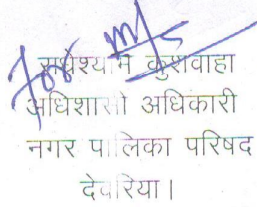 राधेश्याम कुशवाहा
अधिशासी अधिकारी
नगर पालिका परिषद
देवरिया।